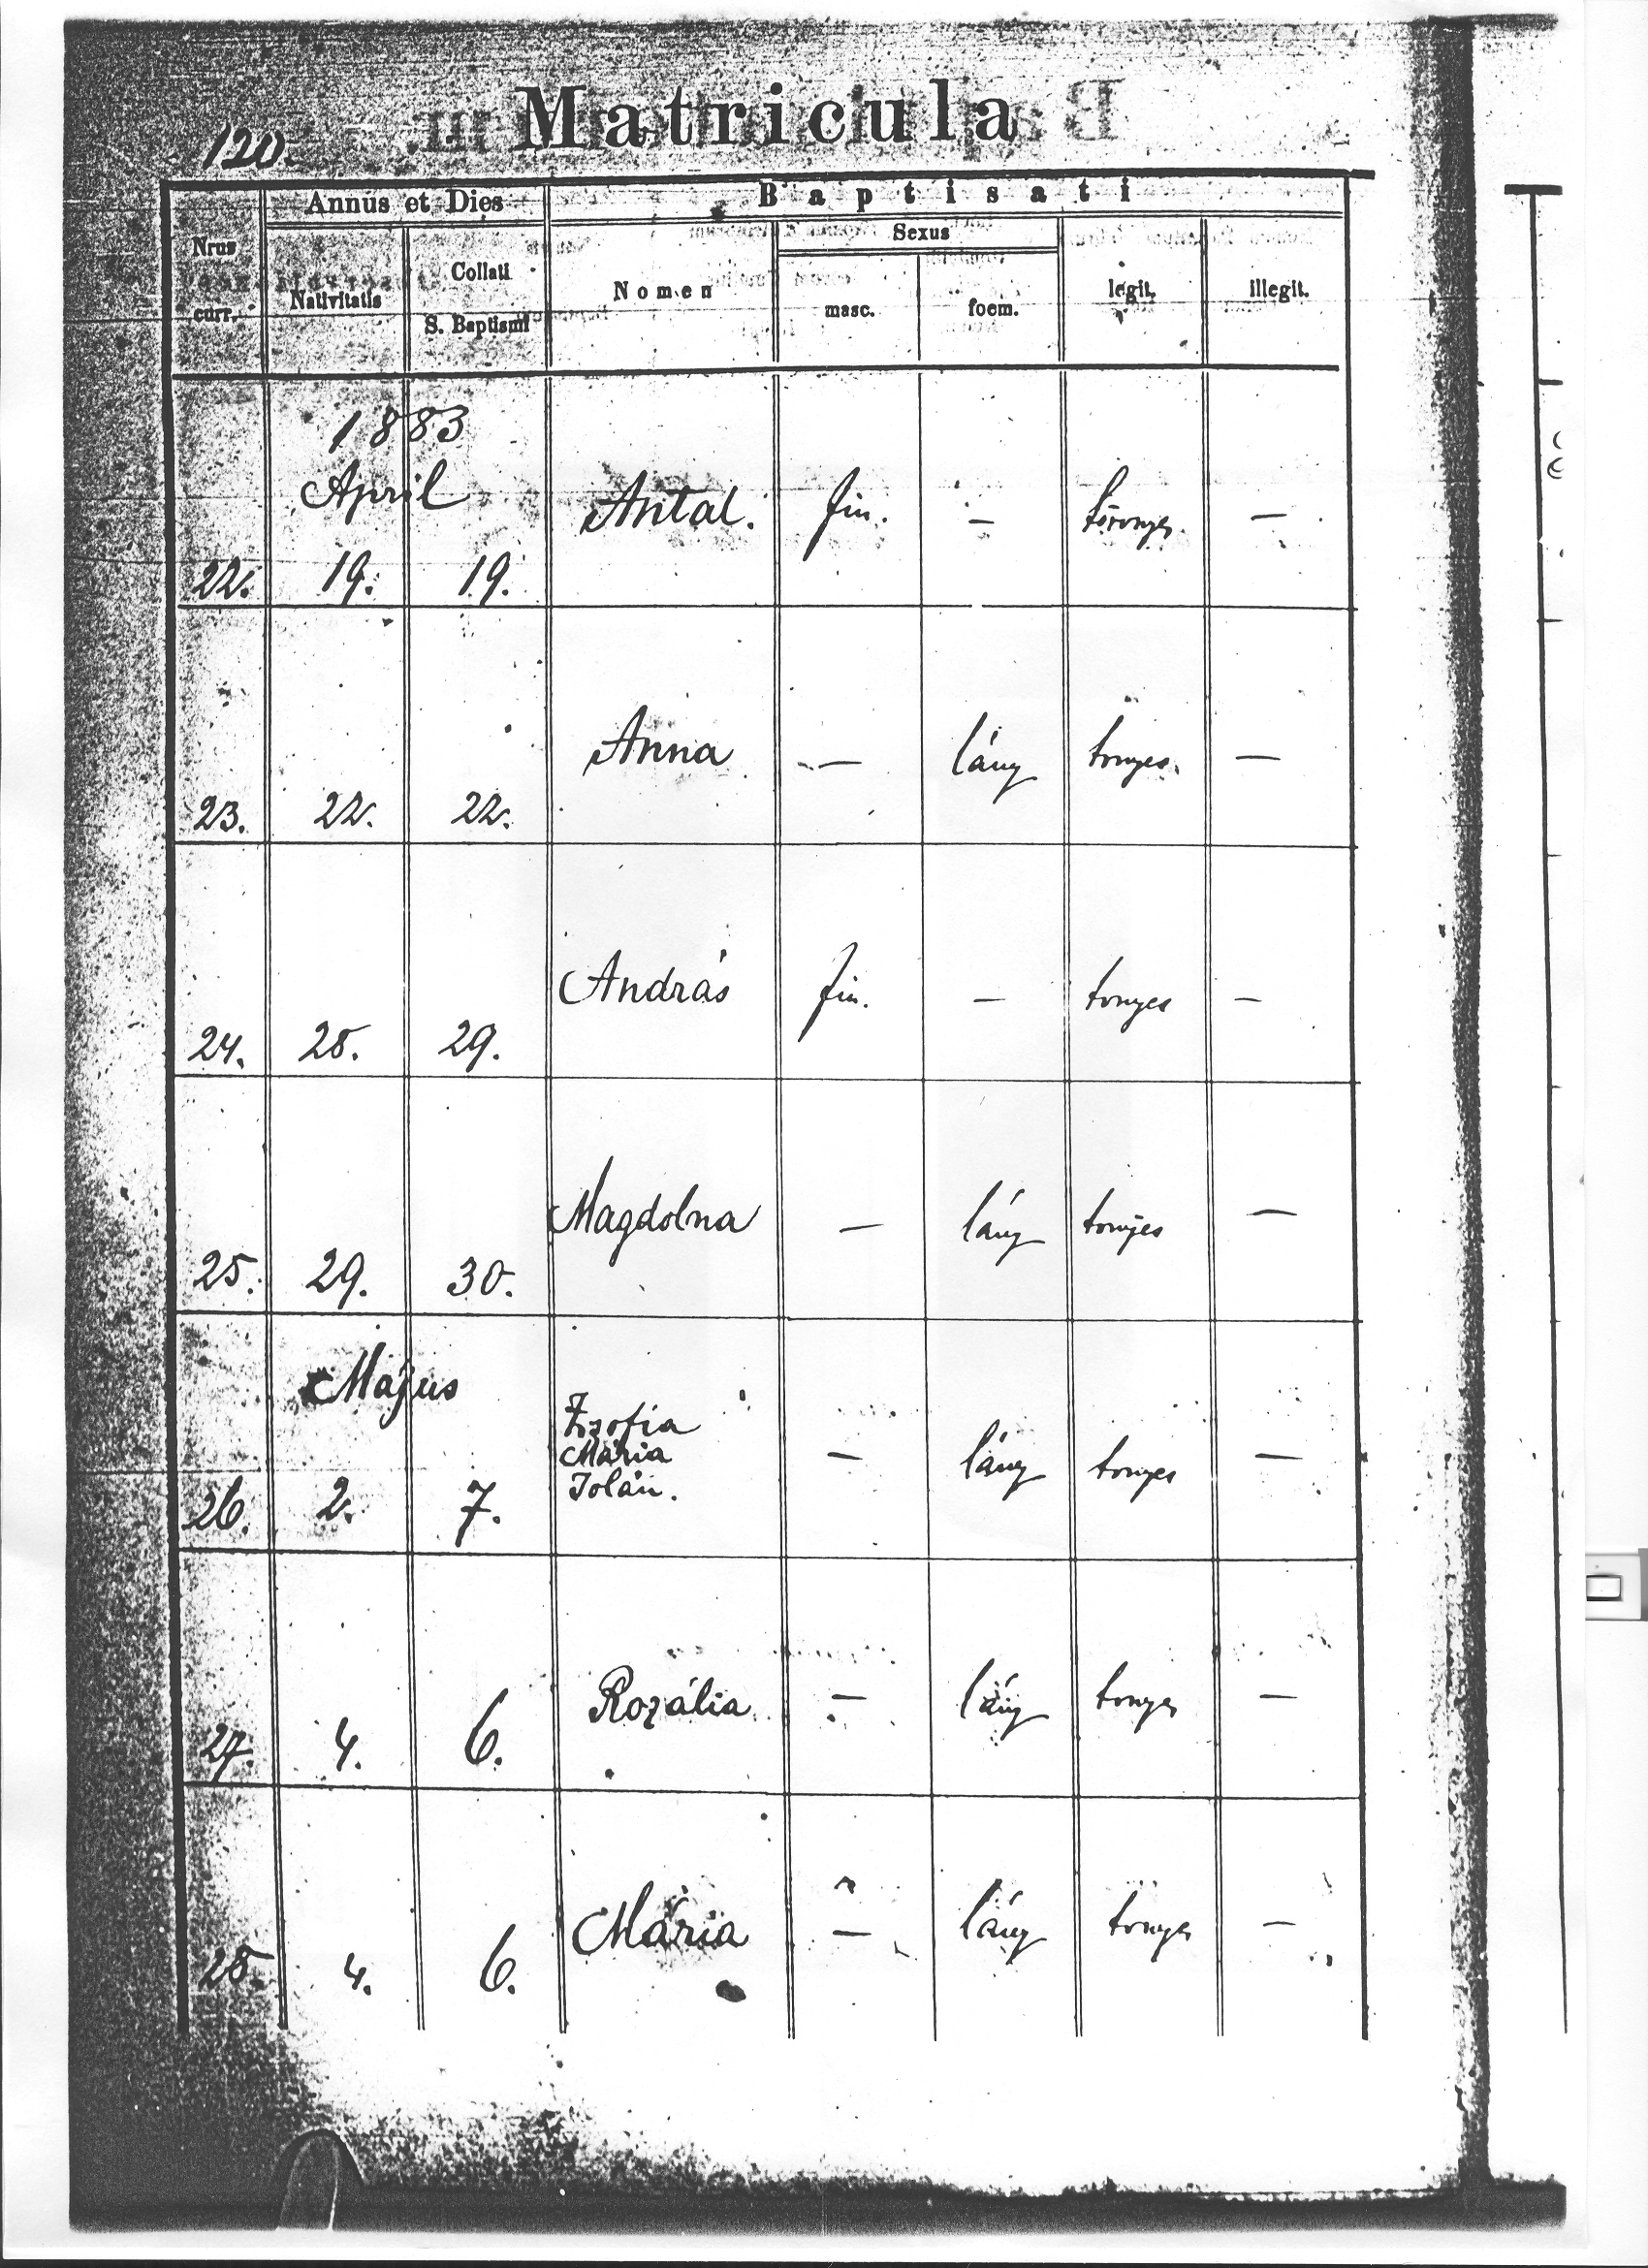 120.
Matricula
Annus et Dies
Baptisati
Nrus curr.
Nativitatis
Collati S. Baptismi
Nomen
Sexus
masc.
foem.
legit.
illegit.
1883
April
22. 19. 19. Antal. fiu. — —
23. 22. 22. Anna — lány tönyes. —
24. 28. 29. András fiu. — tonyes —
25. 29. 30. Magdolna — lány tönyes —
Május
Zsofia
Mária
Jolán.
26. 2. 7. — lány tonyes —
27. 4. 6. Rozália — lány tonyes —
28. 4. 6. Mária — lány tönyes —